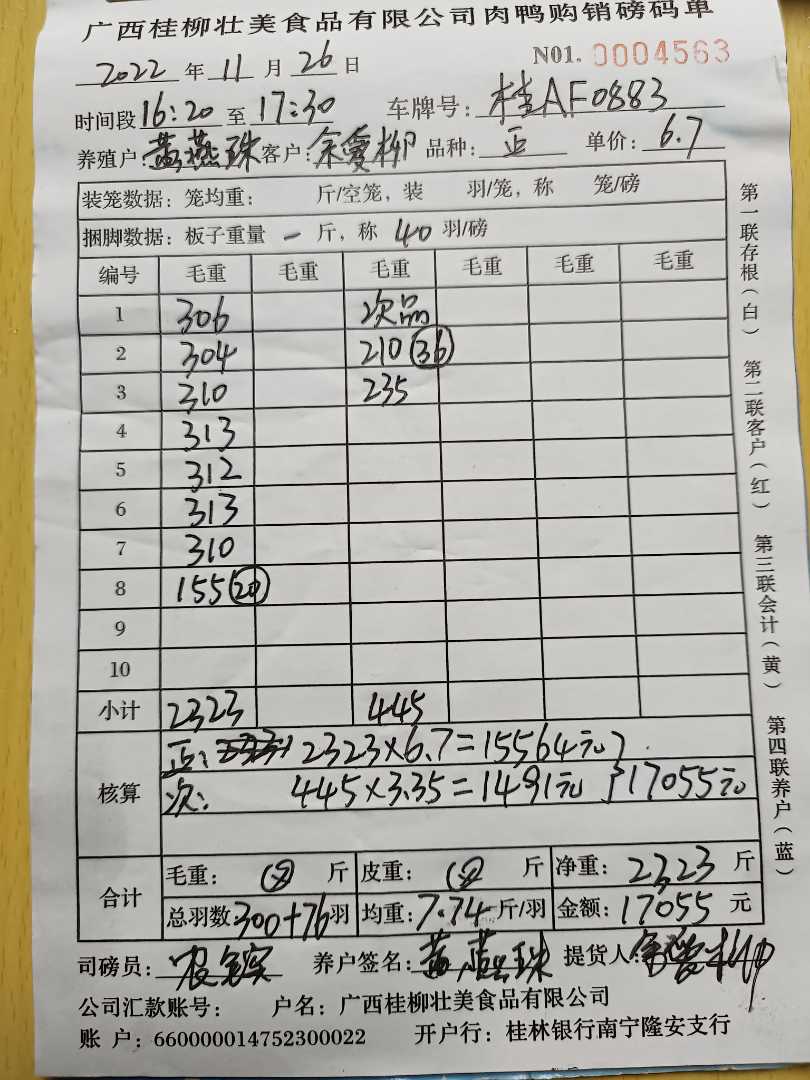 广西桂柳壮美食品有限公司肉鸭购销磅码单
2022 年 11 月 26 日 N01. 0004563
时间段 16:20 至 17:30 车牌号: 桂AF0883
养殖户: 黄燕珠 客户: 余爱柳 品种: 正 单价: 6.7
装笼数据: 笼均重: 斤/空笼, 装 羽/笼, 称 笼/磅
捆脚数据: 板子重量 一 斤, 称 40 羽/磅
编号 毛重 毛重 毛重 毛重 毛重 毛重
1 306 次品
2 304 210 (36)
3 310 235
4 313
5 312
6 313
7 310
8 155 (20)
9
10
小计 2323 445
核算
正: 2323×6.7=15564元
次: 445×3.35=1491元 } 17055元
合计
毛重: 斤 皮重: 斤 净重: 2323 斤
总羽数 300+76 羽 均重: 7.74 斤/羽 金额: 17055 元
司磅员: 养户签名: 黄燕珠 提货人: 余爱柳
公司汇款账号: 户名: 广西桂柳壮美食品有限公司
账 户: 660000014752300022 开户行: 桂林银行南宁隆安支行
第一联存根(白) 第二联客户(红) 第三联会计(黄) 第四联养户(蓝)